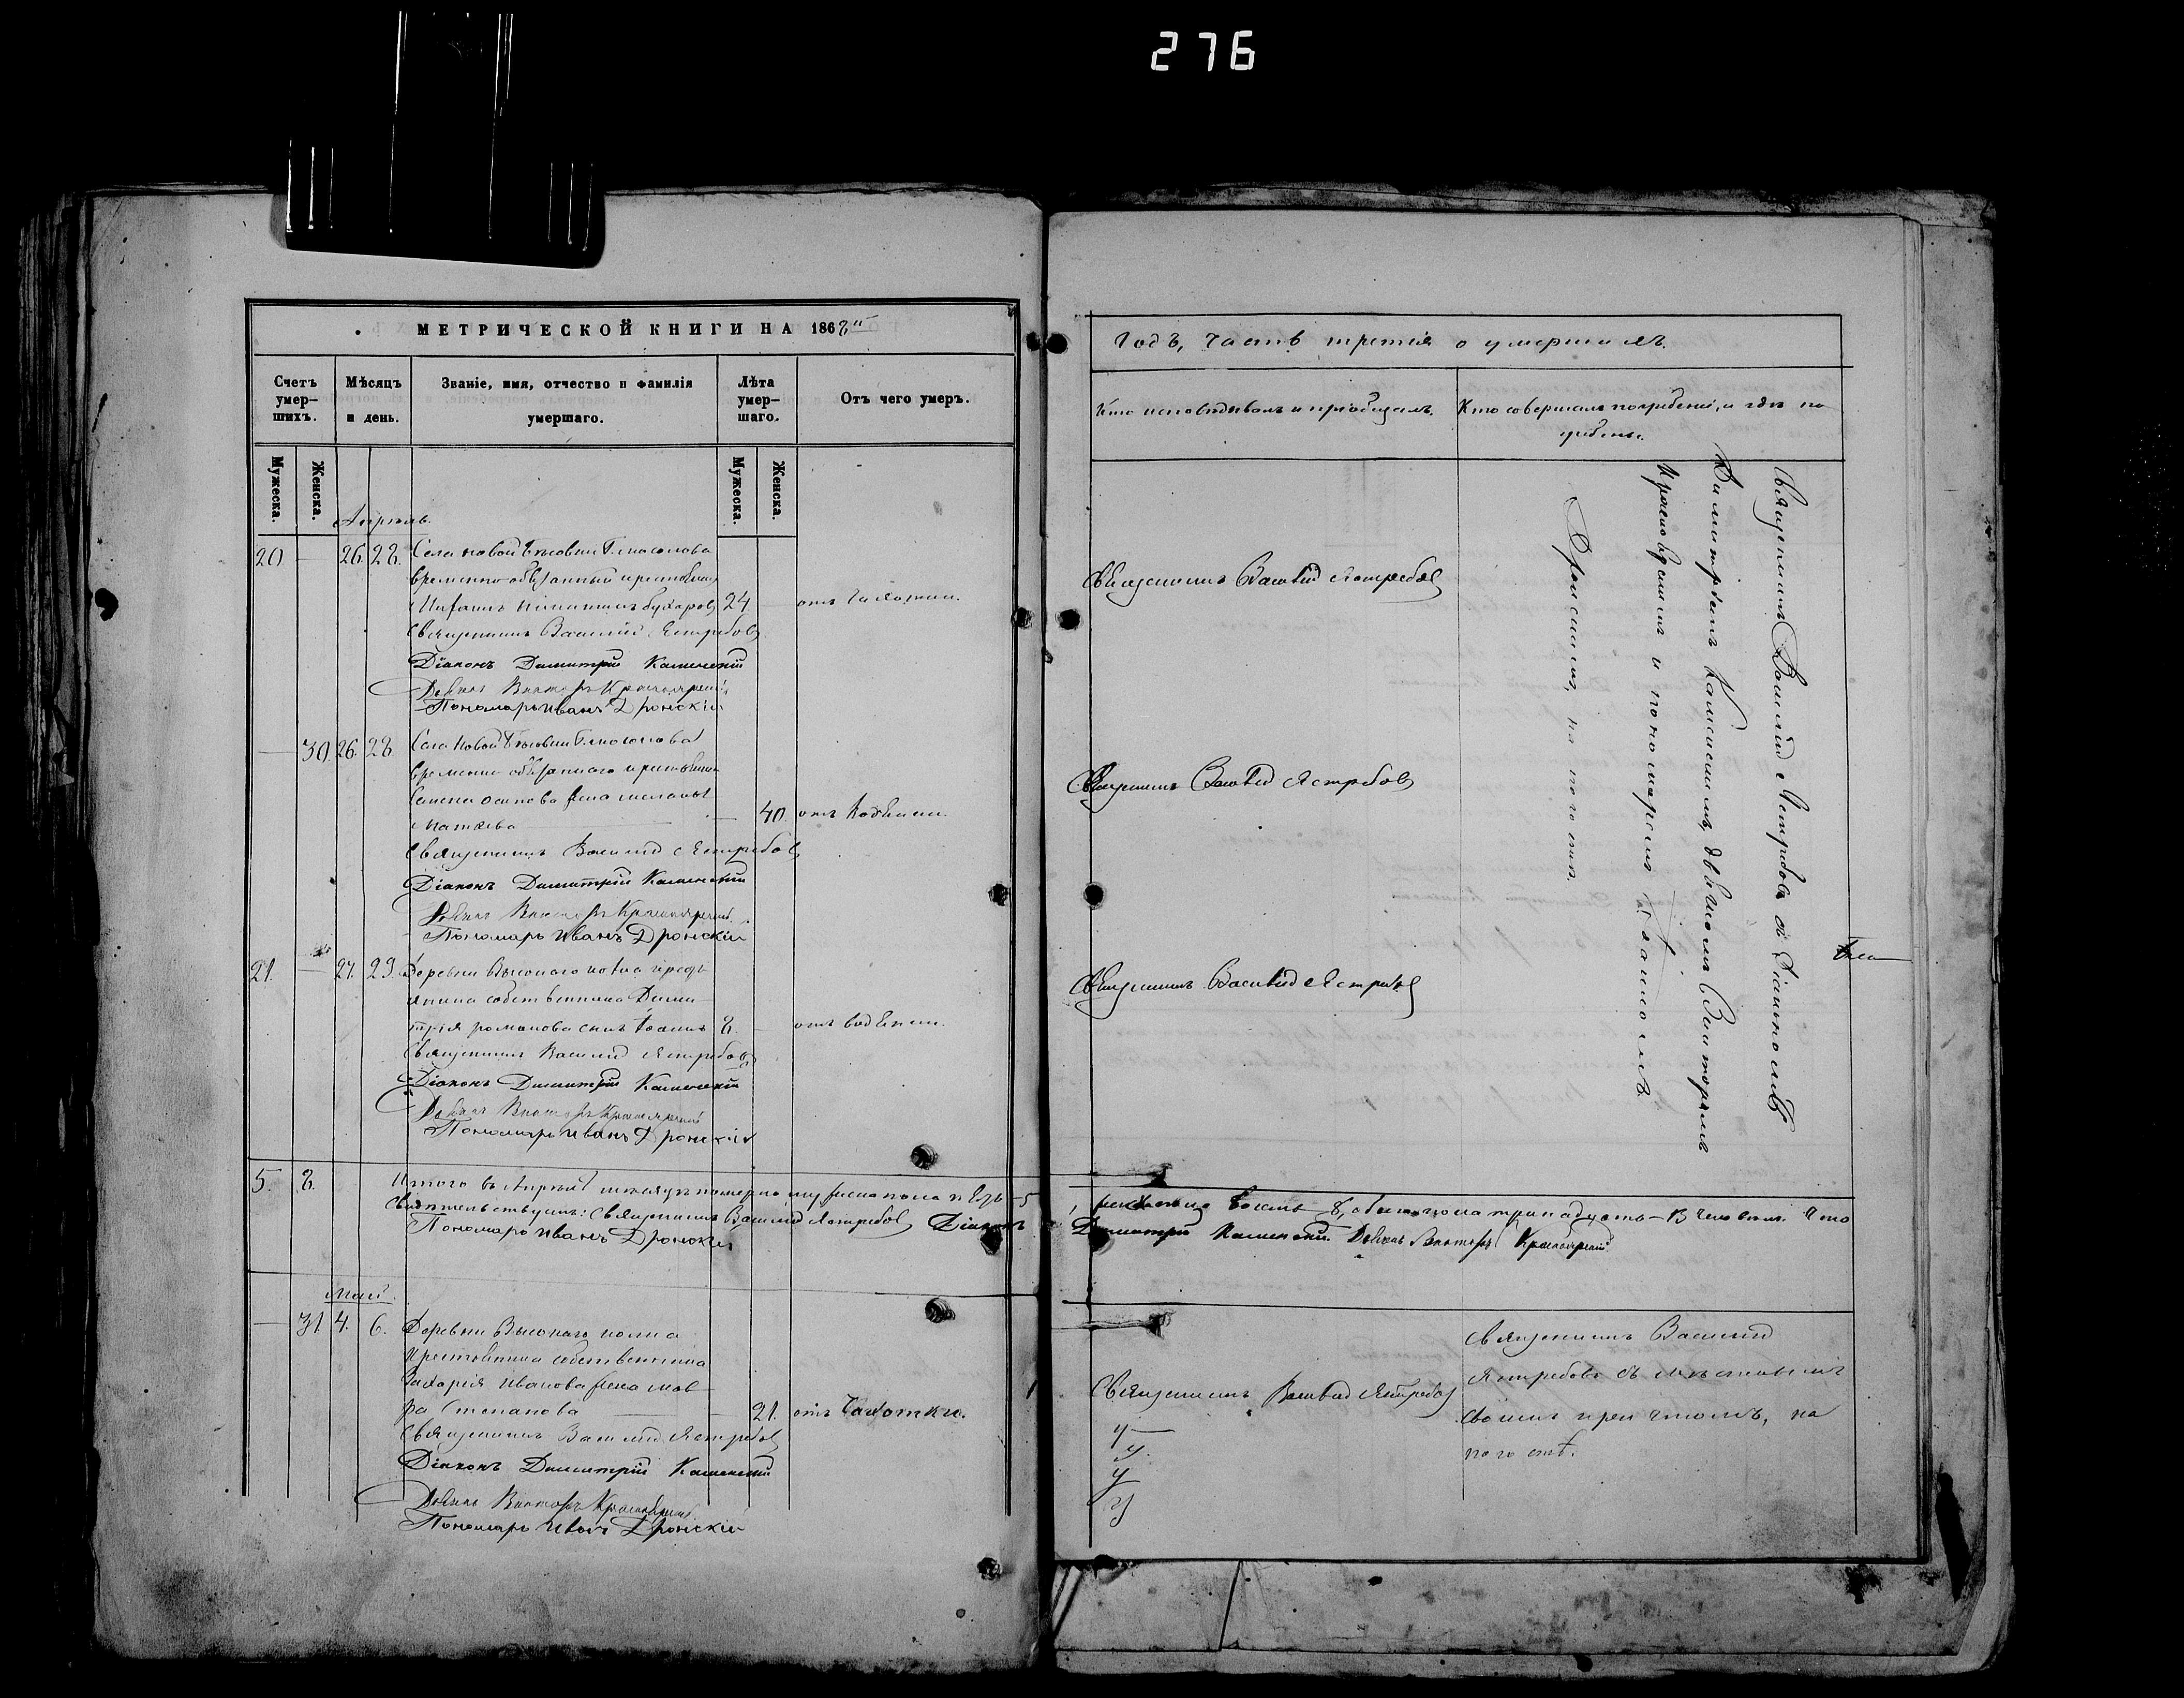 276
МЕТРИЧЕСКОЙ КНИГИ НА 1868й
Счетъ умер-
шихъ.
Мѣсяцъ
и день.
Званіе, имя, отчество и фамилія
умершаго.
Лѣта
умер-
шаго.
Отъ чего умеръ.
Мужеска.
Женска.
Мужеска.
Женска.
Апрѣль.
20 — 26. 28. Села Новой
временно-обязанный крестьянинъ
24 — отъ чахотки.
Священникъ Василій Ястребовъ
Діаконъ Димитрій Каменскій
Дьячекъ Викторъ Красноярскій
Пономарь Иванъ Дронскій
— 30 26. 28 Села Новой
временно обязаннаго крестьянина
Осипова жена
Матѣева — 40. отъ водянки.
Священникъ Василій Ястребовъ
Діаконъ Димитрій Каменскій
Дьячекъ Викторъ Красноярскій
Пономарь Иванъ Дронскій
21. — 27. 29. Деревни Высокаго
собственника Дими-
трія Романова сынъ Іоаннъ 8. — отъ водянки.
Священникъ Василій Ястребовъ
Діаконъ Димитрій Каменскій
Дьячекъ Викторъ Красноярскій
Пономарь Иванъ Дронскій
5. 8. Итого въ Апрѣлѣ мѣсяцѣ померло мужеска пола
свидѣтельствуемъ: Священникъ Василій Ястребовъ Діаконъ
Пономарь Иванъ Дронскій
Май.
— 31. 4. 6. Деревни Высокаго
крестьянина собственника
Захарія Иванова жена Мав-
ра Степанова — 21. отъ чахотки.
Священникъ Василій Ястребовъ
Діаконъ Димитрій Каменскій
Дьячекъ Викторъ Красноярскій
Пономарь Иванъ Дронскій
Годъ, часть третія о умершихъ.
Кто исповѣдывалъ и пріобщалъ.
Кто совершалъ погребеніе, и гдѣ по
гребены.
Священникъ Василій Ястребовъ
Священникъ Василій Ястребовъ
Священникъ Василій Ястребовъ
Священникъ Василій Ястребовъ съ Діакономъ
Димитріемъ Каменскимъ, дьячкомъ Викторомъ
Красноярскимъ и пономаремъ Иваномъ
Дронскимъ, на погостѣ.
женска восемь 8, обоего пола тринадцать — 13 человѣкъ. Что
Димитрій Каменскій Дьячекъ Викторъ Красноярскій
Священникъ Василій Ястребовъ
Священникъ Василій
Ястребовъ съ
своимъ причтомъ, на
погостѣ.